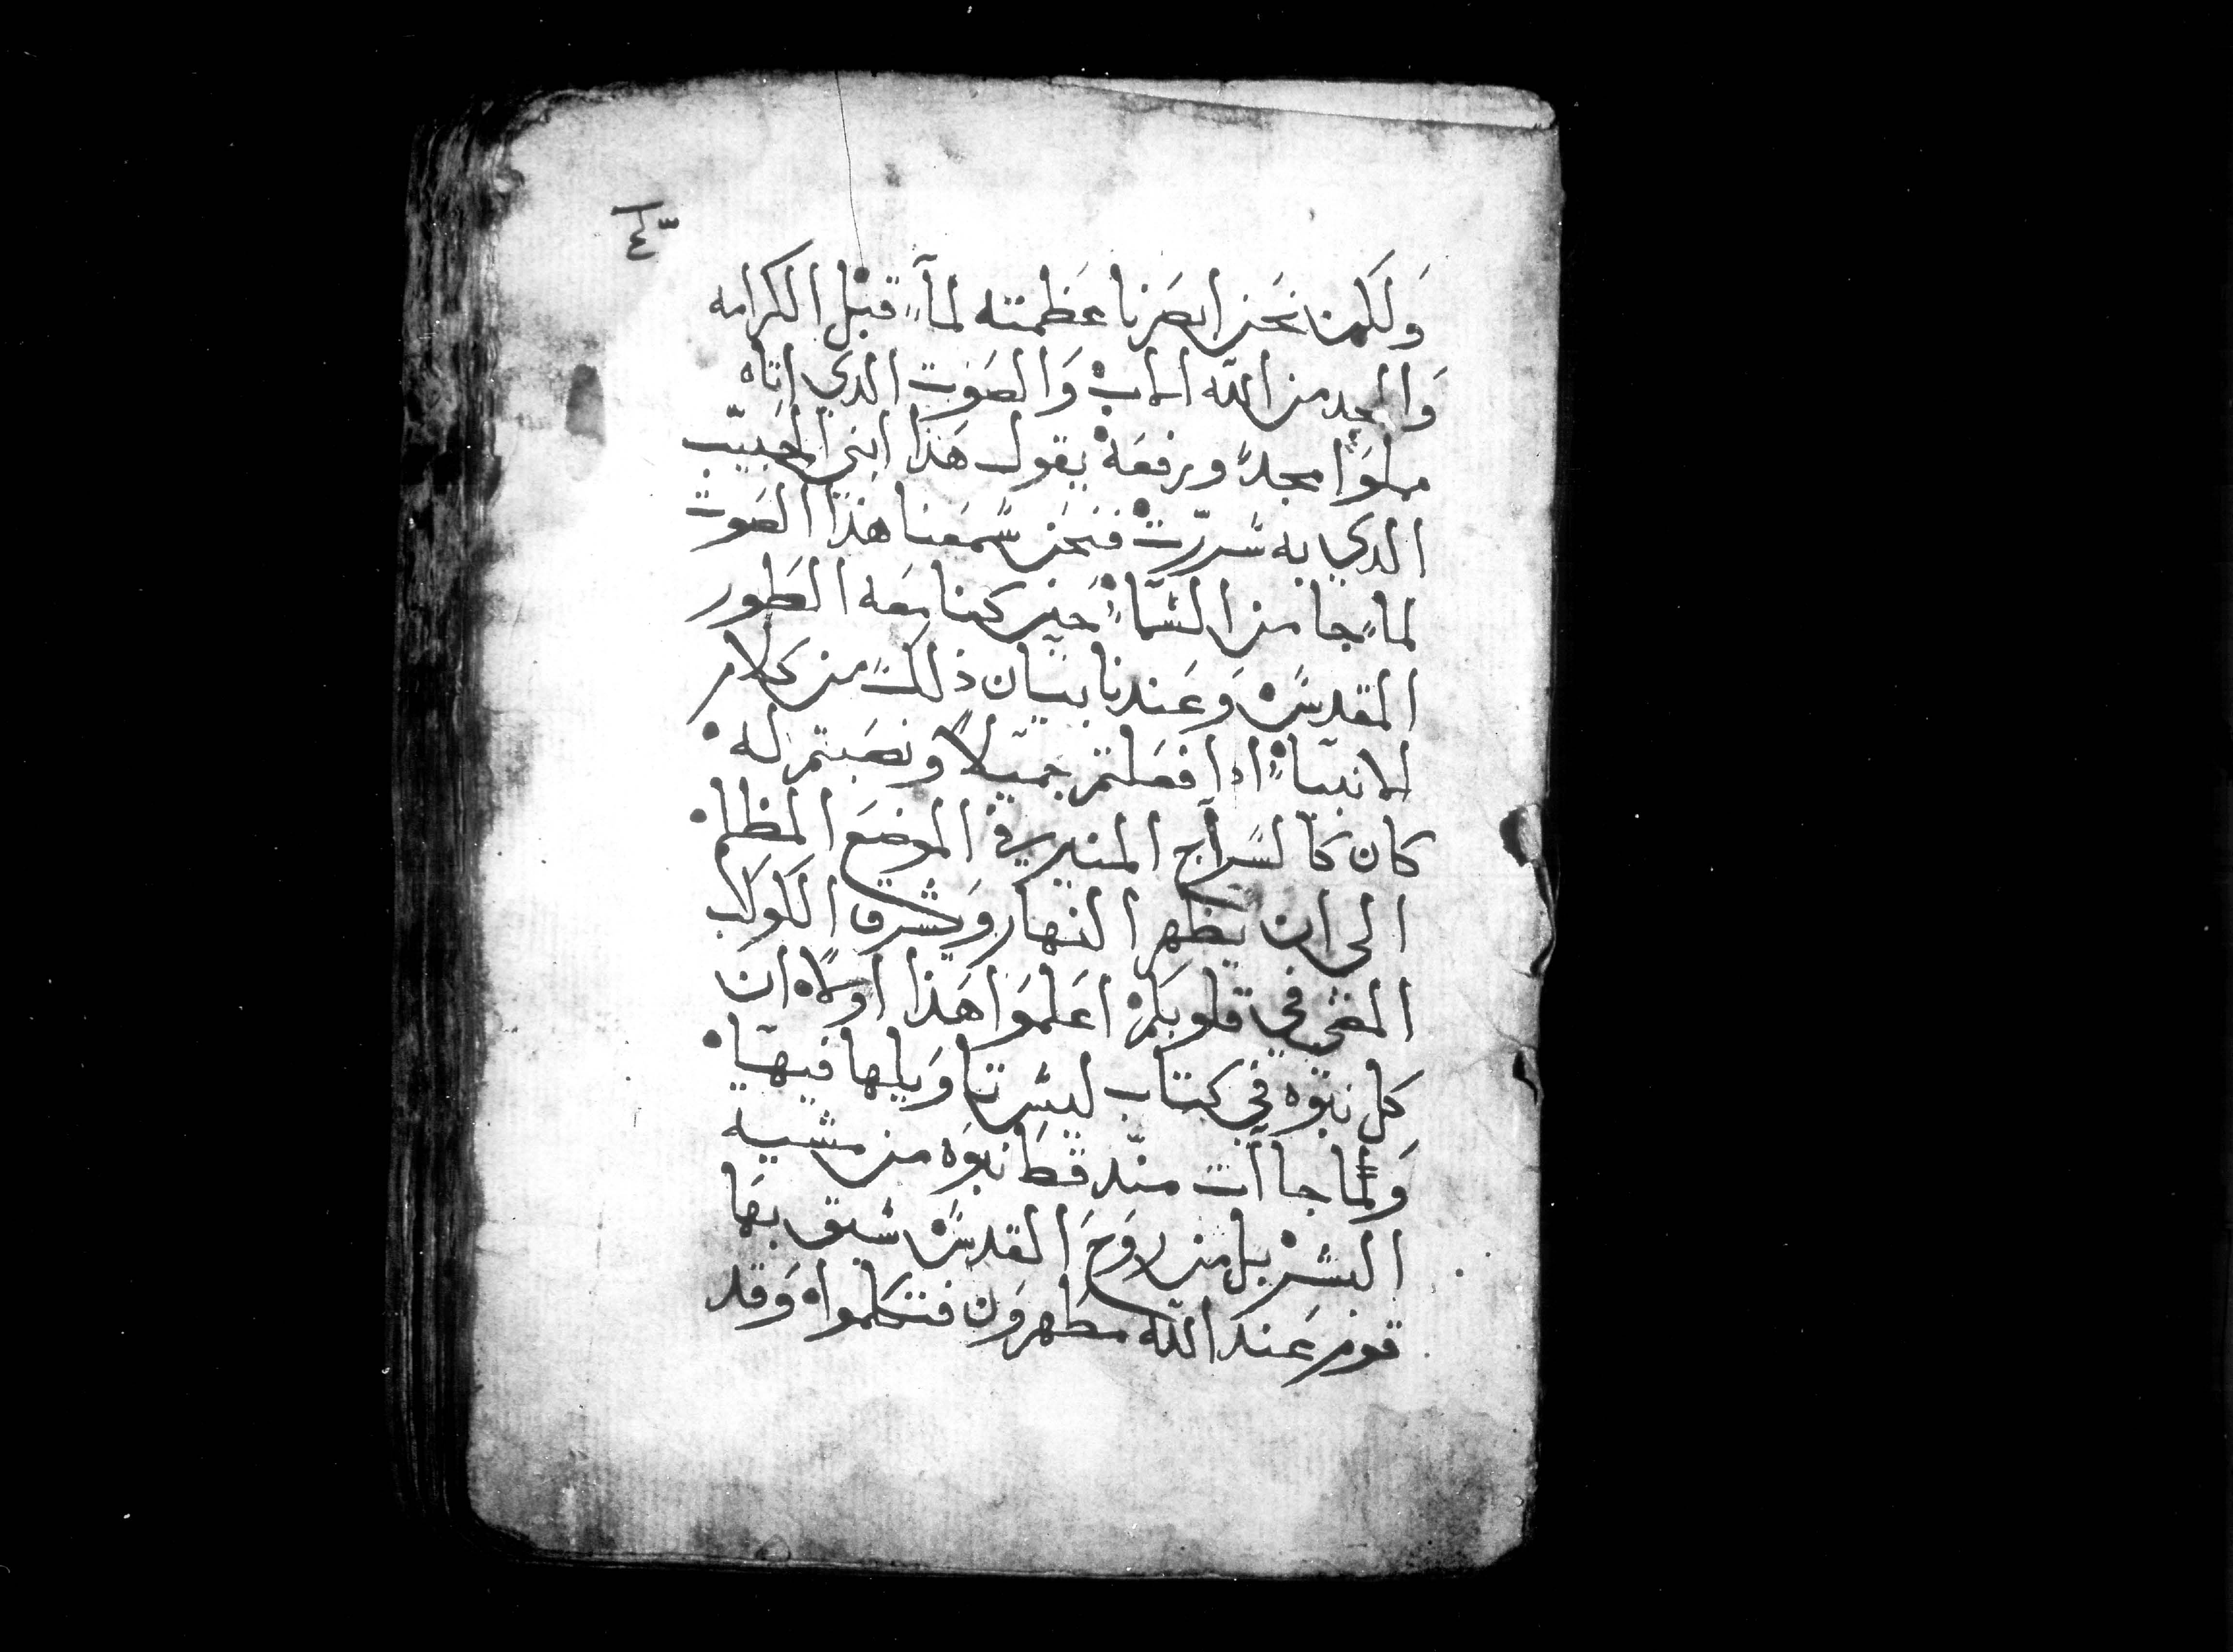 وَلَكن نَحَن ابصَرنا عَظمته لمآ قبْل الكرامه
وَالمجد من اللّه الاب وَالصَوت الدي اتاه
مملوَا مجدًا ورفعَة يقول هَذا ابني الحَبيّب
الدي به سُررّت فنحَن سَمعنا هذا الصَوت
لما جا من السَّمآ حَين كنا معَه الطَور
المقدسَ وَعَندنا بيان ذلك من كلام
الانبيآ ادا فعَلتم جَميلًا ونصَبتم له
كان كالسَراج المنير في الموضعَ المظلم
الى ان يَظهر النهار وَيشرق الكوكب
المضي في قلوبكم اعَلموَا هَذا اولا ان
كل نبوه في كتاب ليسَ تاويلها فيها
وَلمّا جاآت منّد قط نبوَه من مشيه
البشر بل من روَحَ القدسَ سَبق بهَا
قوم عَند اللّه مطَهروَن فتكلموا وَقد